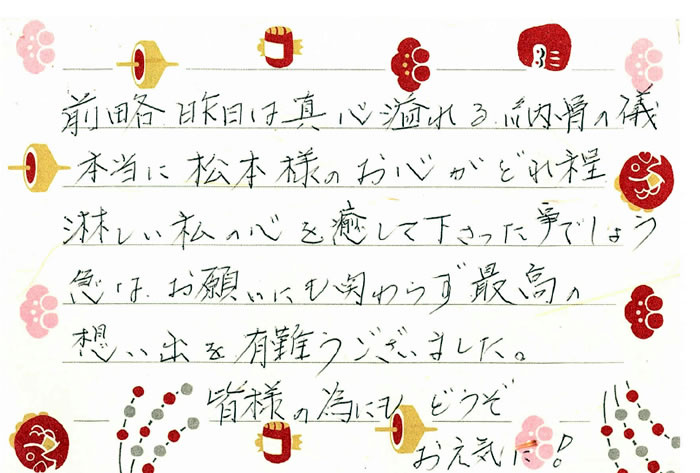 前略 昨日は真心溢れる納骨の儀
本当に松本様のお心がどれ程
淋しい私の心を癒して下さった事でしょう
急な お願いにも関わらず最高の
想い出を有難うございました。
皆様の為にも どうぞ
お元気に!